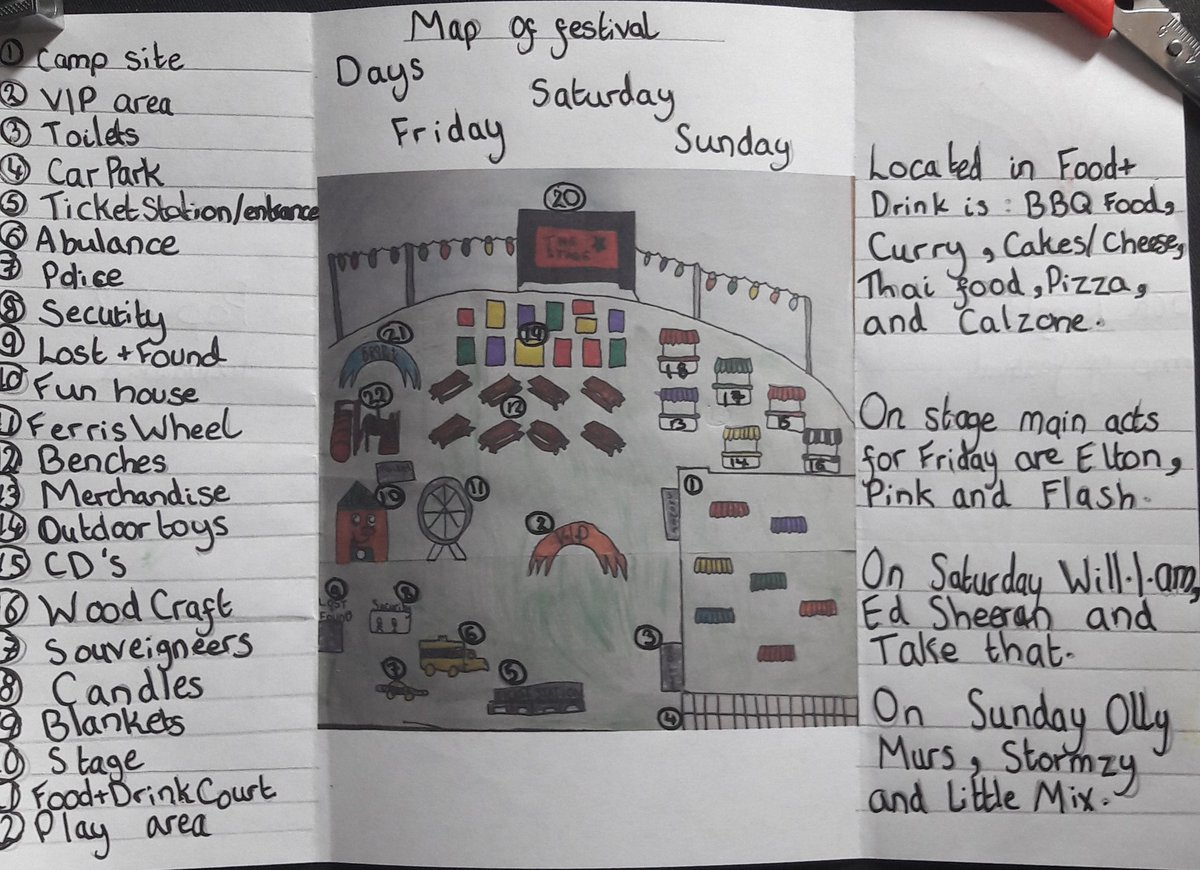 Map of festival
Days
Saturday
Friday
Sunday
① Camp site
② VIP area
③ Toilets
④ Car Park
⑤ Ticket Station/entrance
⑥ Abulance
⑦ Police
⑧ Secutity
⑨ Lost + Found
10 Fun house
11 Ferris Wheel
12 Benches
13 Merchandise
14 Outdoor toys
15 CD's
16 Wood Craft
17 Souveigneers
18 Candles
19 Blankets
20 Stage
21 Food + Drink Court
22 Play area
20
THE
STAGE
21
19
18
17
22
12
13
15
14
16
10
11
1
2
V.I.P
9
LOST
FOUND
8
6
3
7
5
TICKET STATION
4
Located in Food +
Drink is : BBQ Food,
Curry, Cakes/Cheese,
Thai food, Pizza,
and Calzone.
On stage main acts
for Friday are Elton,
Pink and Flash.
On Saturday Will.I.am,
Ed Sheeran and
Take that.
On Sunday Olly
Murs, Stormzy
and Little Mix.